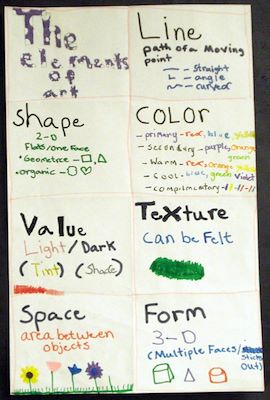 The
elements
of
art
Line
path of a Moving
point
- straight
- angle
- curved
Shape
2-D
Flats/one Face
• Geometric -
• organic -
COLOR
- primary - red, blue yellow
- secondary - purple, orange
green
- Warm - red, orange yellow
- Cool - blue, green violet
- complimentary -
Value
Light/Dark
(Tint) (Shade)
Texture
Can be Felt
Space
area between
objects
Form
3-D
(Multiple Faces/
Sticks
Out)